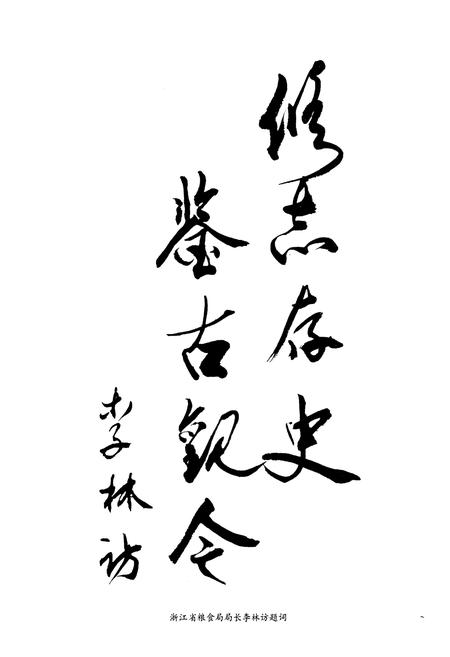 修志存史
鉴古观今
李林访
浙江省粮食局局长李林访题词